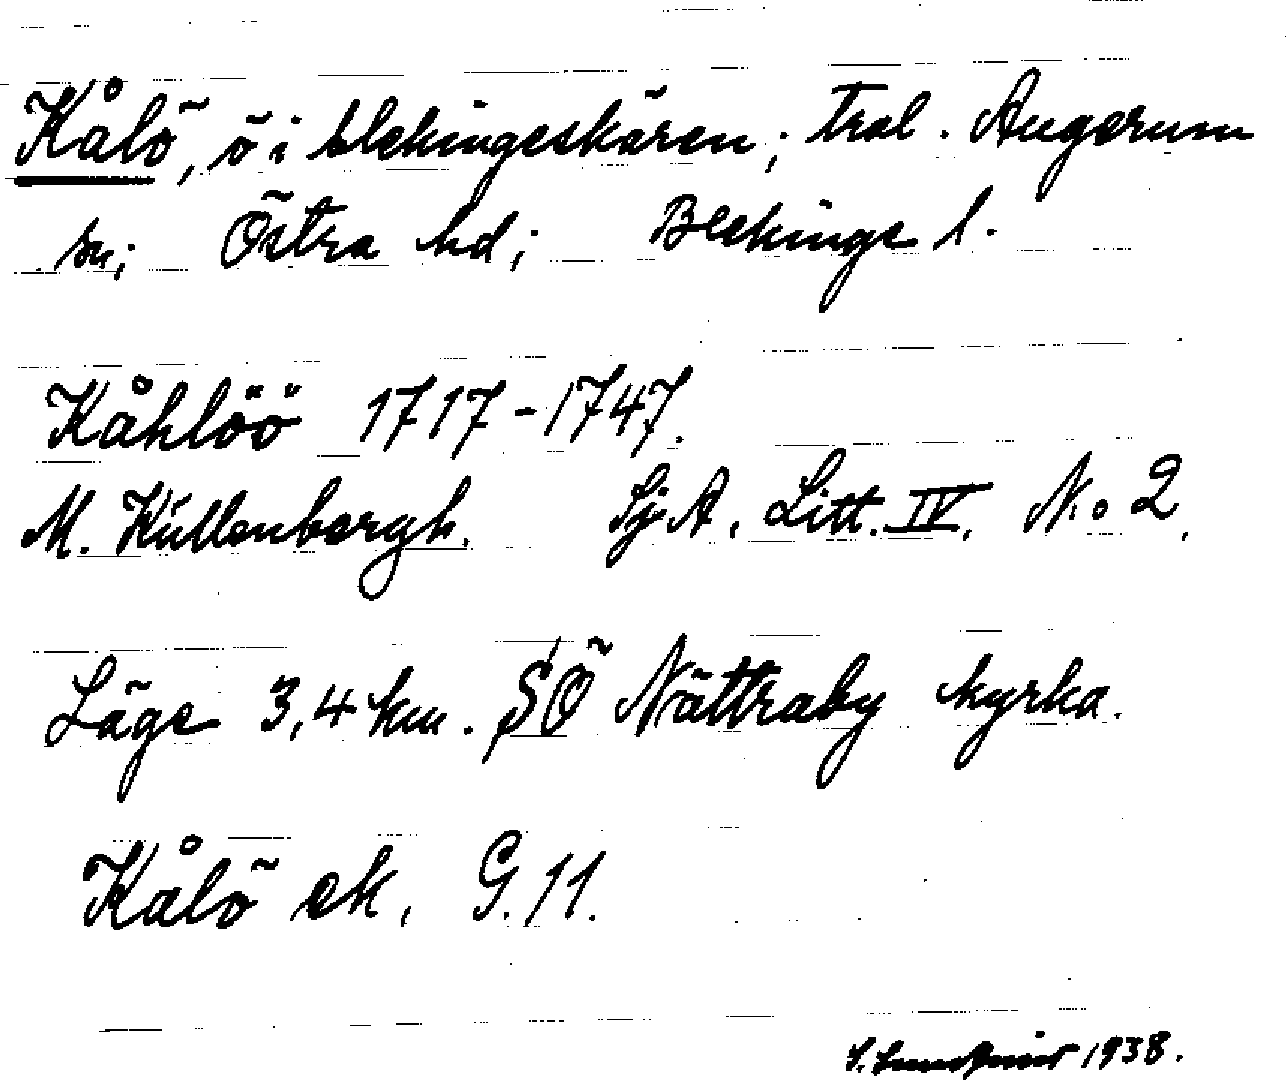 Kålö, ö i blekingeskären; trol. Augerum
sn; Östra hd; Blekinge l.
Kåhlöö 1717-1747.
M. Küllenbergh. SjA. Litt. IV. No 2.
Läge 3,4 km. SÖ Nättraby kyrka.
Kålö ek. G. 11.
S. Lundqvist 1938.